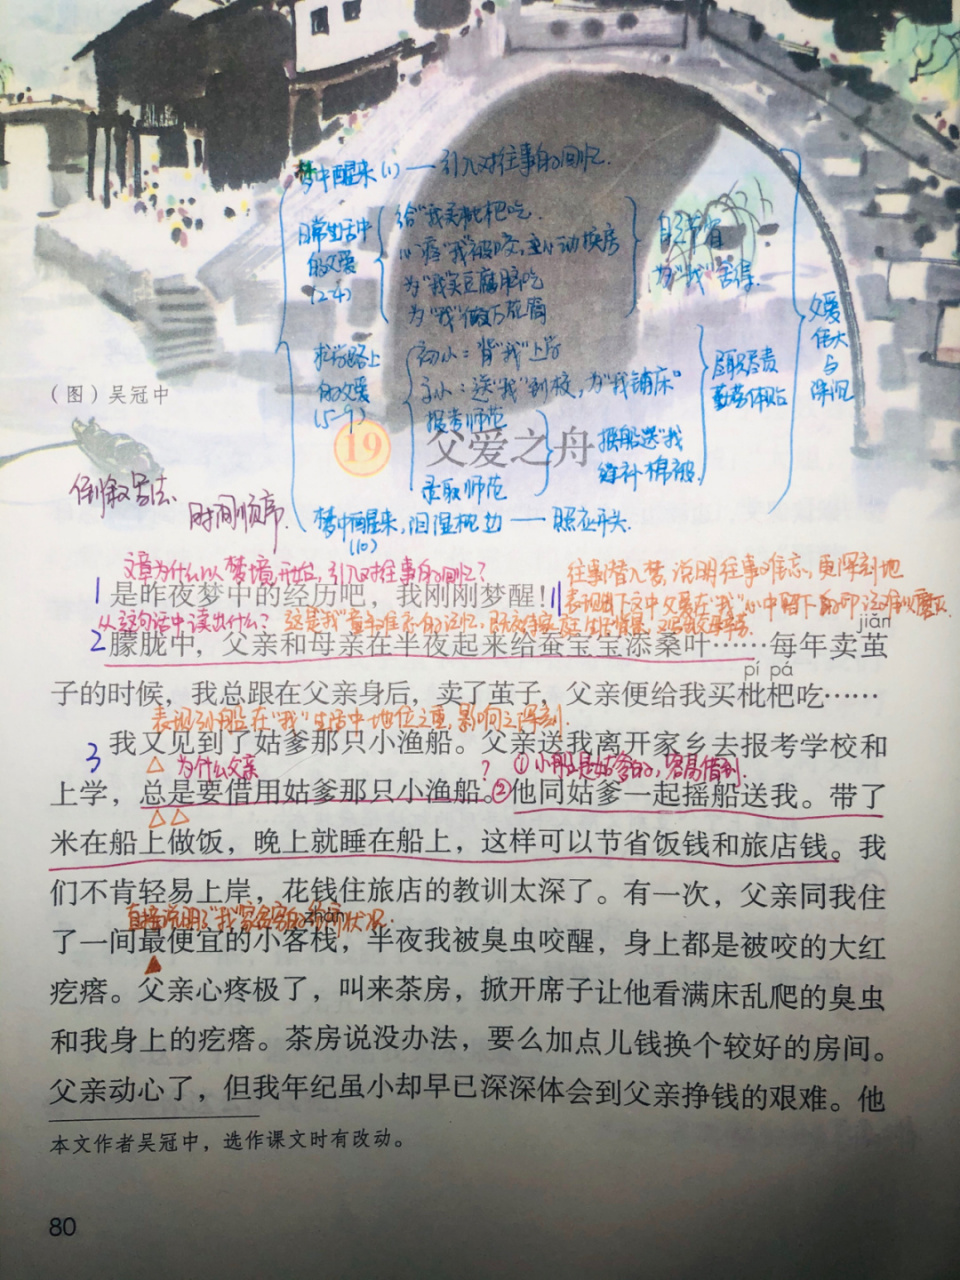 梦中醒来(1)——引入对往事的回忆.
日常生活中的父爱(2-4)
给"我"买枇杷吃.
心疼"我"被咬,主动换房
为"我"买豆腐脑吃
为"我"做万花筒
自己节省
为"我"舍得.
求学路上的父爱(5-9)
初小:背"我"上学
高小:送"我"到校,为"我"铺床"
报考师范
录取师范
摇船送"我
缝补棉被.
尽职尽责
勤劳体贴
父爱伟大与深沉
(图)吴冠中
19 父爱之舟
倒叙写法、
时间顺序.
梦中醒来,泪湿枕边——照应开头.
(10)
文章为什么以梦境开始,引入对往事的回忆?
往事潜入梦,说明往事难忘,更深刻地
1 是昨夜梦中的经历吧,我刚刚梦醒!
表现出下文中父爱在"我"心中留下的印记难以磨灭.
从这句话中读出什么?
jiǎn
2 朦胧中,父亲和母亲在半夜起来给蚕宝宝添桑叶……每年卖茧
pí pá
子的时候,我总跟在父亲身后,卖了茧子,父亲便给我买枇杷吃……
表现小船在"我"生活中地位之重,影响之深刻.
3 我又见到了姑爹那只小渔船。父亲送我离开家乡去报考学校和
为什么父亲 ? ①小船是姑爹的,容易借到.
上学,总是要借用姑爹那只小渔船。②他同姑爹一起摇船送我。带了
米在船上做饭,晚上就睡在船上,这样可以节省饭钱和旅店钱。我
们不肯轻易上岸,花钱住旅店的教训太深了。有一次,父亲同我住
直接说明了"我"家贫穷的经济状况.
zhàn
了一间最便宜的小客栈,半夜我被臭虫咬醒,身上都是被咬的大红
疙瘩。父亲心疼极了,叫来茶房,掀开席子让他看满床乱爬的臭虫
和我身上的疙瘩。茶房说没办法,要么加点儿钱换个较好的房间。
父亲动心了,但我年纪虽小却早已深深体会到父亲挣钱的艰难。他
本文作者吴冠中,选作课文时有改动。
80